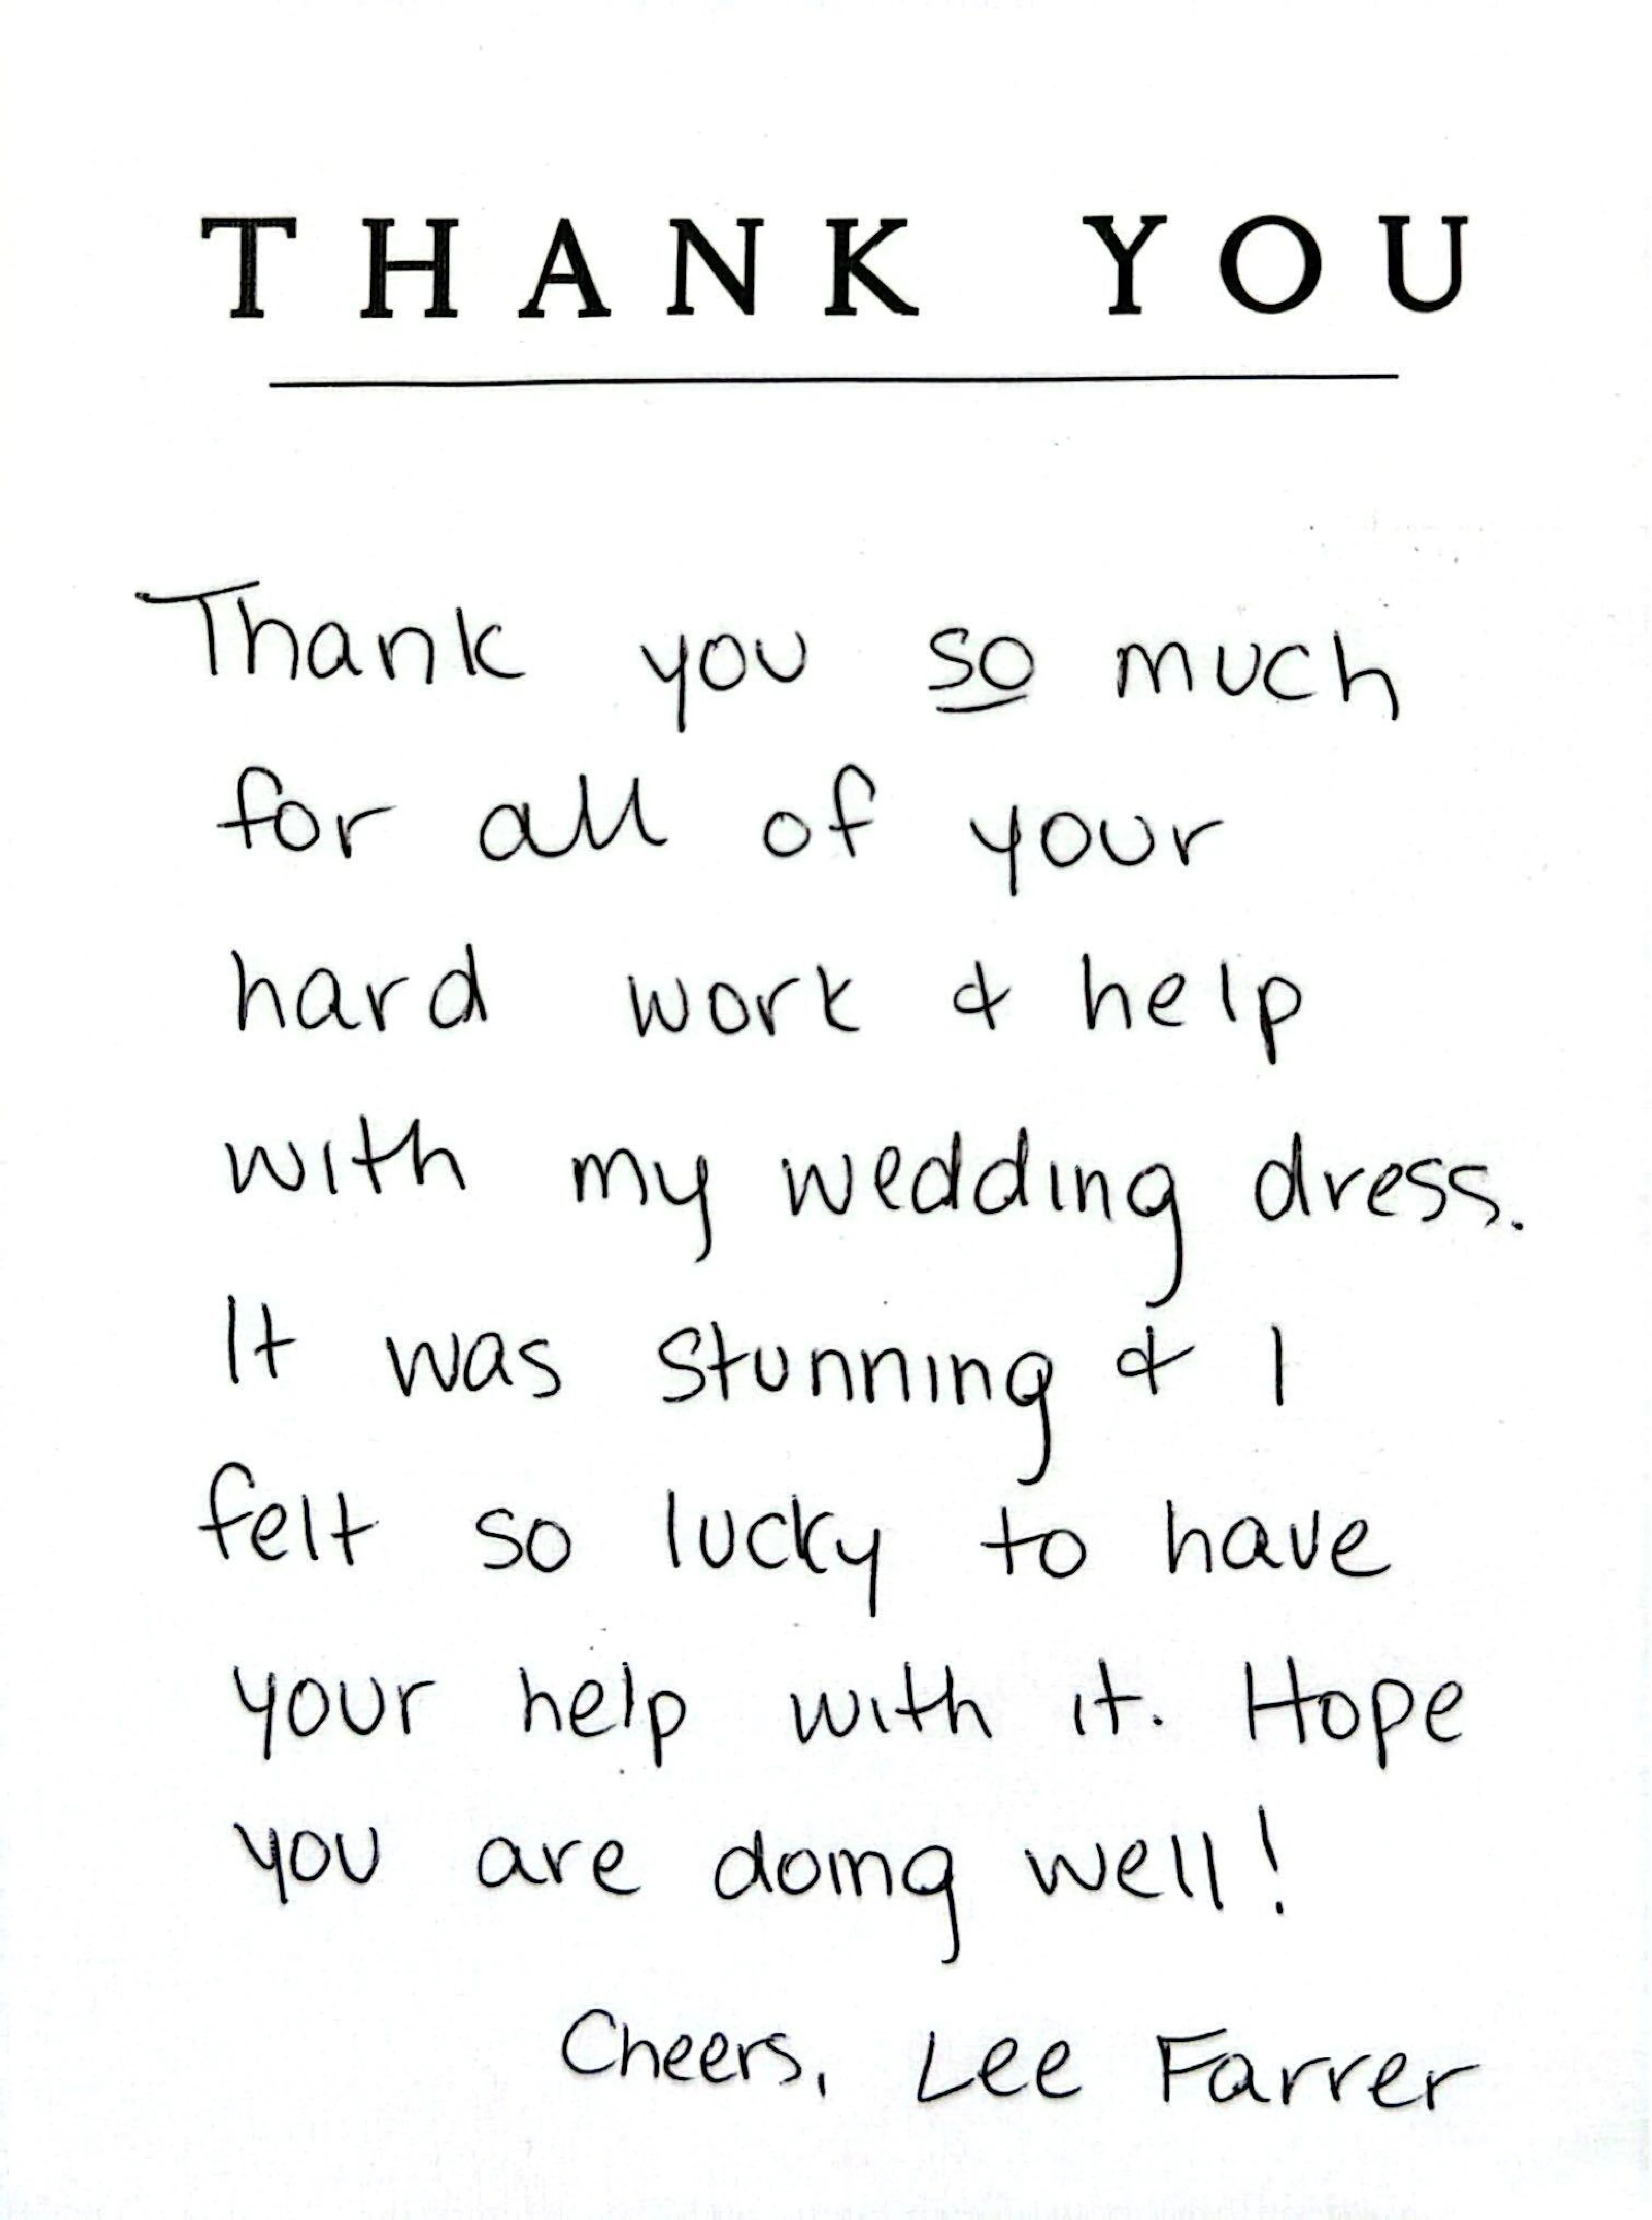 THANK YOU
Thank you so much
for all of your
hard work & help
with my wedding dress.
It was stunning & I
felt so lucky to have
your help with it. Hope
you are doing well!
Cheers, Lee Farrer